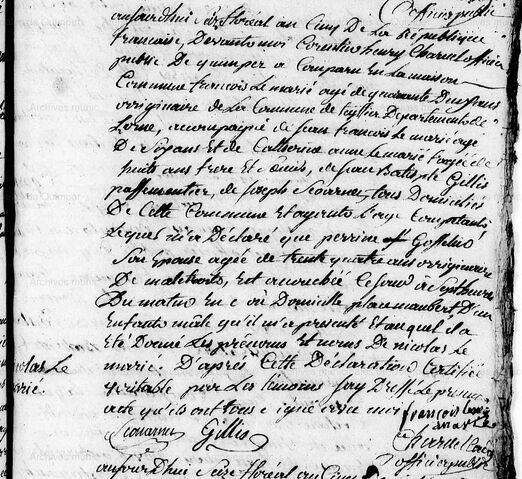 officier public
aujourd'hui floreal an Cinq De La Republique
francaise, Devant moi Corentin henry Charuel officier
public de quimper a Comparu En La maison
Commune francois Le marié agé de quarante Deux ans
originaire de La Commune de Departement de
Lorne, accompagné de jean francois Le marié agé
De ans Et de Catherine anne Le marié agée de
huit ans frere Et de jean Batiste Gillis
passementier, de joseph tous Domiciliés
De Cette Commune Et ayant L'age Competant
Lequel m'a Déclaré que perrine Gosselin
Son Epouse agée de trente quatre ans originaire
De maletroit, Est accouchée Ce jour a Sept heures
Du matin En Son Domicile place maubert D'un
Enfant mâle qu'il m'a presenté Et auquel il a
Eté Donné Les prénoms Et noms De nicolas Le
marié. D'après Cette Déclaration Certifiée
veritable par Les temoins j'ay Dressé Le present
acte qu'ils ont tous signé avec moi francois
Gillis
Charuel
officier public
nicolas Le
marié.
aujourd'hui floreal an Cinq